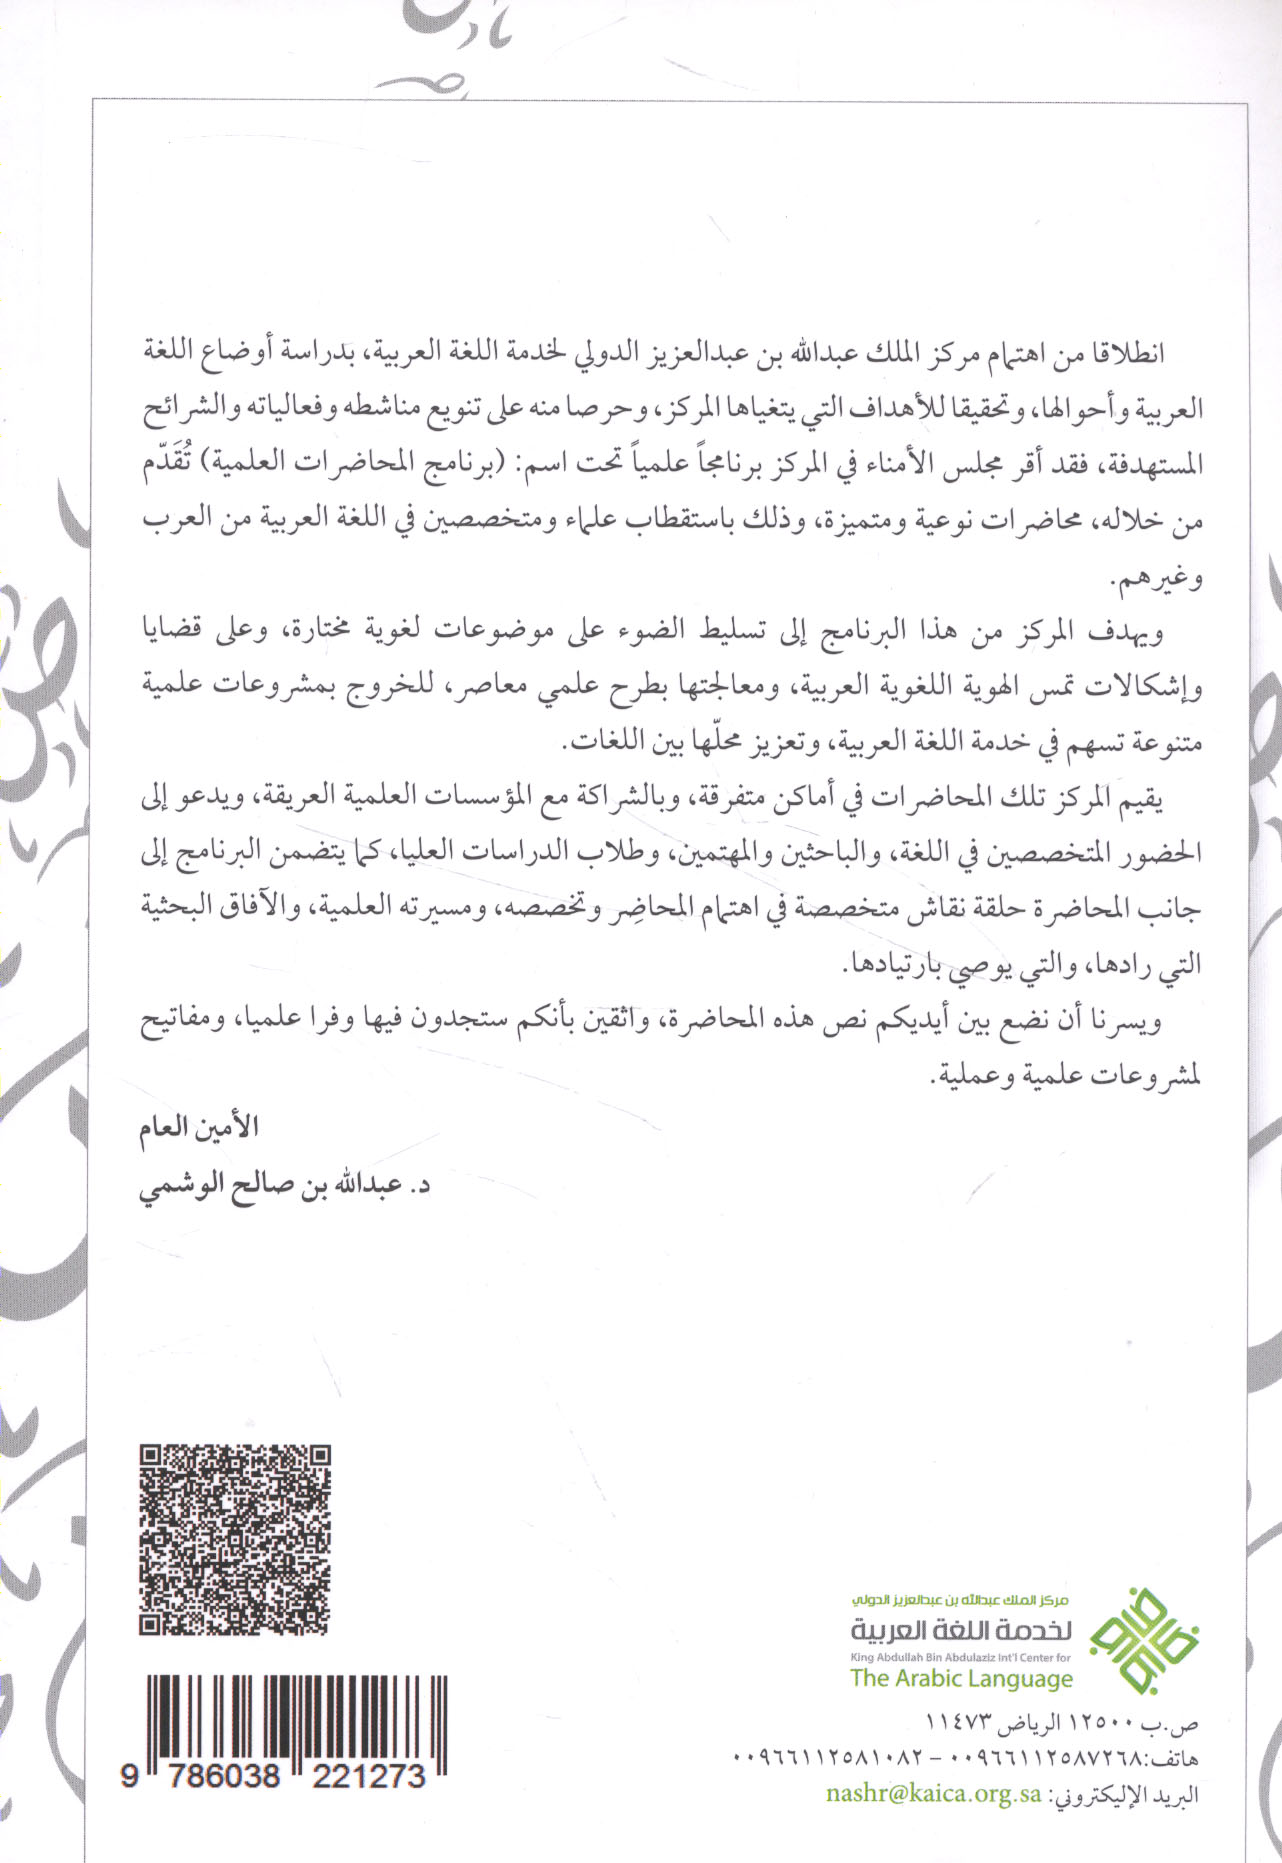 انطلاقا من اهتمام مركز الملك عبدالله بن عبدالعزيز الدولي لخدمة اللغة العربية، بدراسة أوضاع اللغة
العربية وأحوالها، وتحقيقا للأهداف التي يتغياها المركز، وحرصا منه على تنويع مناشطه وفعالياته والشرائح
المستهدفة، فقد أقر مجلس الأمناء في المركز برنامجاً علمياً تحت اسم: (برنامج المحاضرات العلمية) تُقَدّم
من خلاله، محاضرات نوعية ومتميزة، وذلك باستقطاب علماء ومتخصصين في اللغة العربية من العرب
وغيرهم.
ويهدف المركز من هذا البرنامج إلى تسليط الضوء على موضوعات لغوية مختارة، وعلى قضايا
وإشكالات تمس الهوية اللغوية العربية، ومعالجتها بطرح علمي معاصر، للخروج بمشروعات علمية
متنوعة تسهم في خدمة اللغة العربية، وتعزيز محلّها بين اللغات.
يقيم المركز تلك المحاضرات في أماكن متفرقة، وبالشراكة مع المؤسسات العلمية العريقة، ويدعو إلى
الحضور المتخصصين في اللغة، والباحثين والمهتمين، وطلاب الدراسات العليا، كما يتضمن البرنامج إلى
جانب المحاضرة حلقة نقاش متخصصة في اهتمام المحاضِر وتخصصه، ومسيرته العلمية، والآفاق البحثية
التي رادها، والتي يوصي بارتيادها.
ويسرنا أن نضع بين أيديكم نص هذه المحاضرة، واثقين بأنكم ستجدون فيها وفرا علميا، ومفاتيح
لمشروعات علمية وعملية.
الأمين العام
د. عبدالله بن صالح الوشمي
مركز الملك عبدالله بن عبدالعزيز الدولي
لخدمة اللغة العربية
King Abdullah Bin Abdulaziz Int'l Center for
The Arabic Language
ص.ب ١٢٥٠٠ الرياض ١١٤٧٣
هاتف:٠٠٩٦٦١١٢٥٨٧٢٦٨ - ٠٠٩٦٦١١٢٥٨١٠٨٢
البريد الإليكتروني: nashr@kaica.org.sa
9 786038 221273